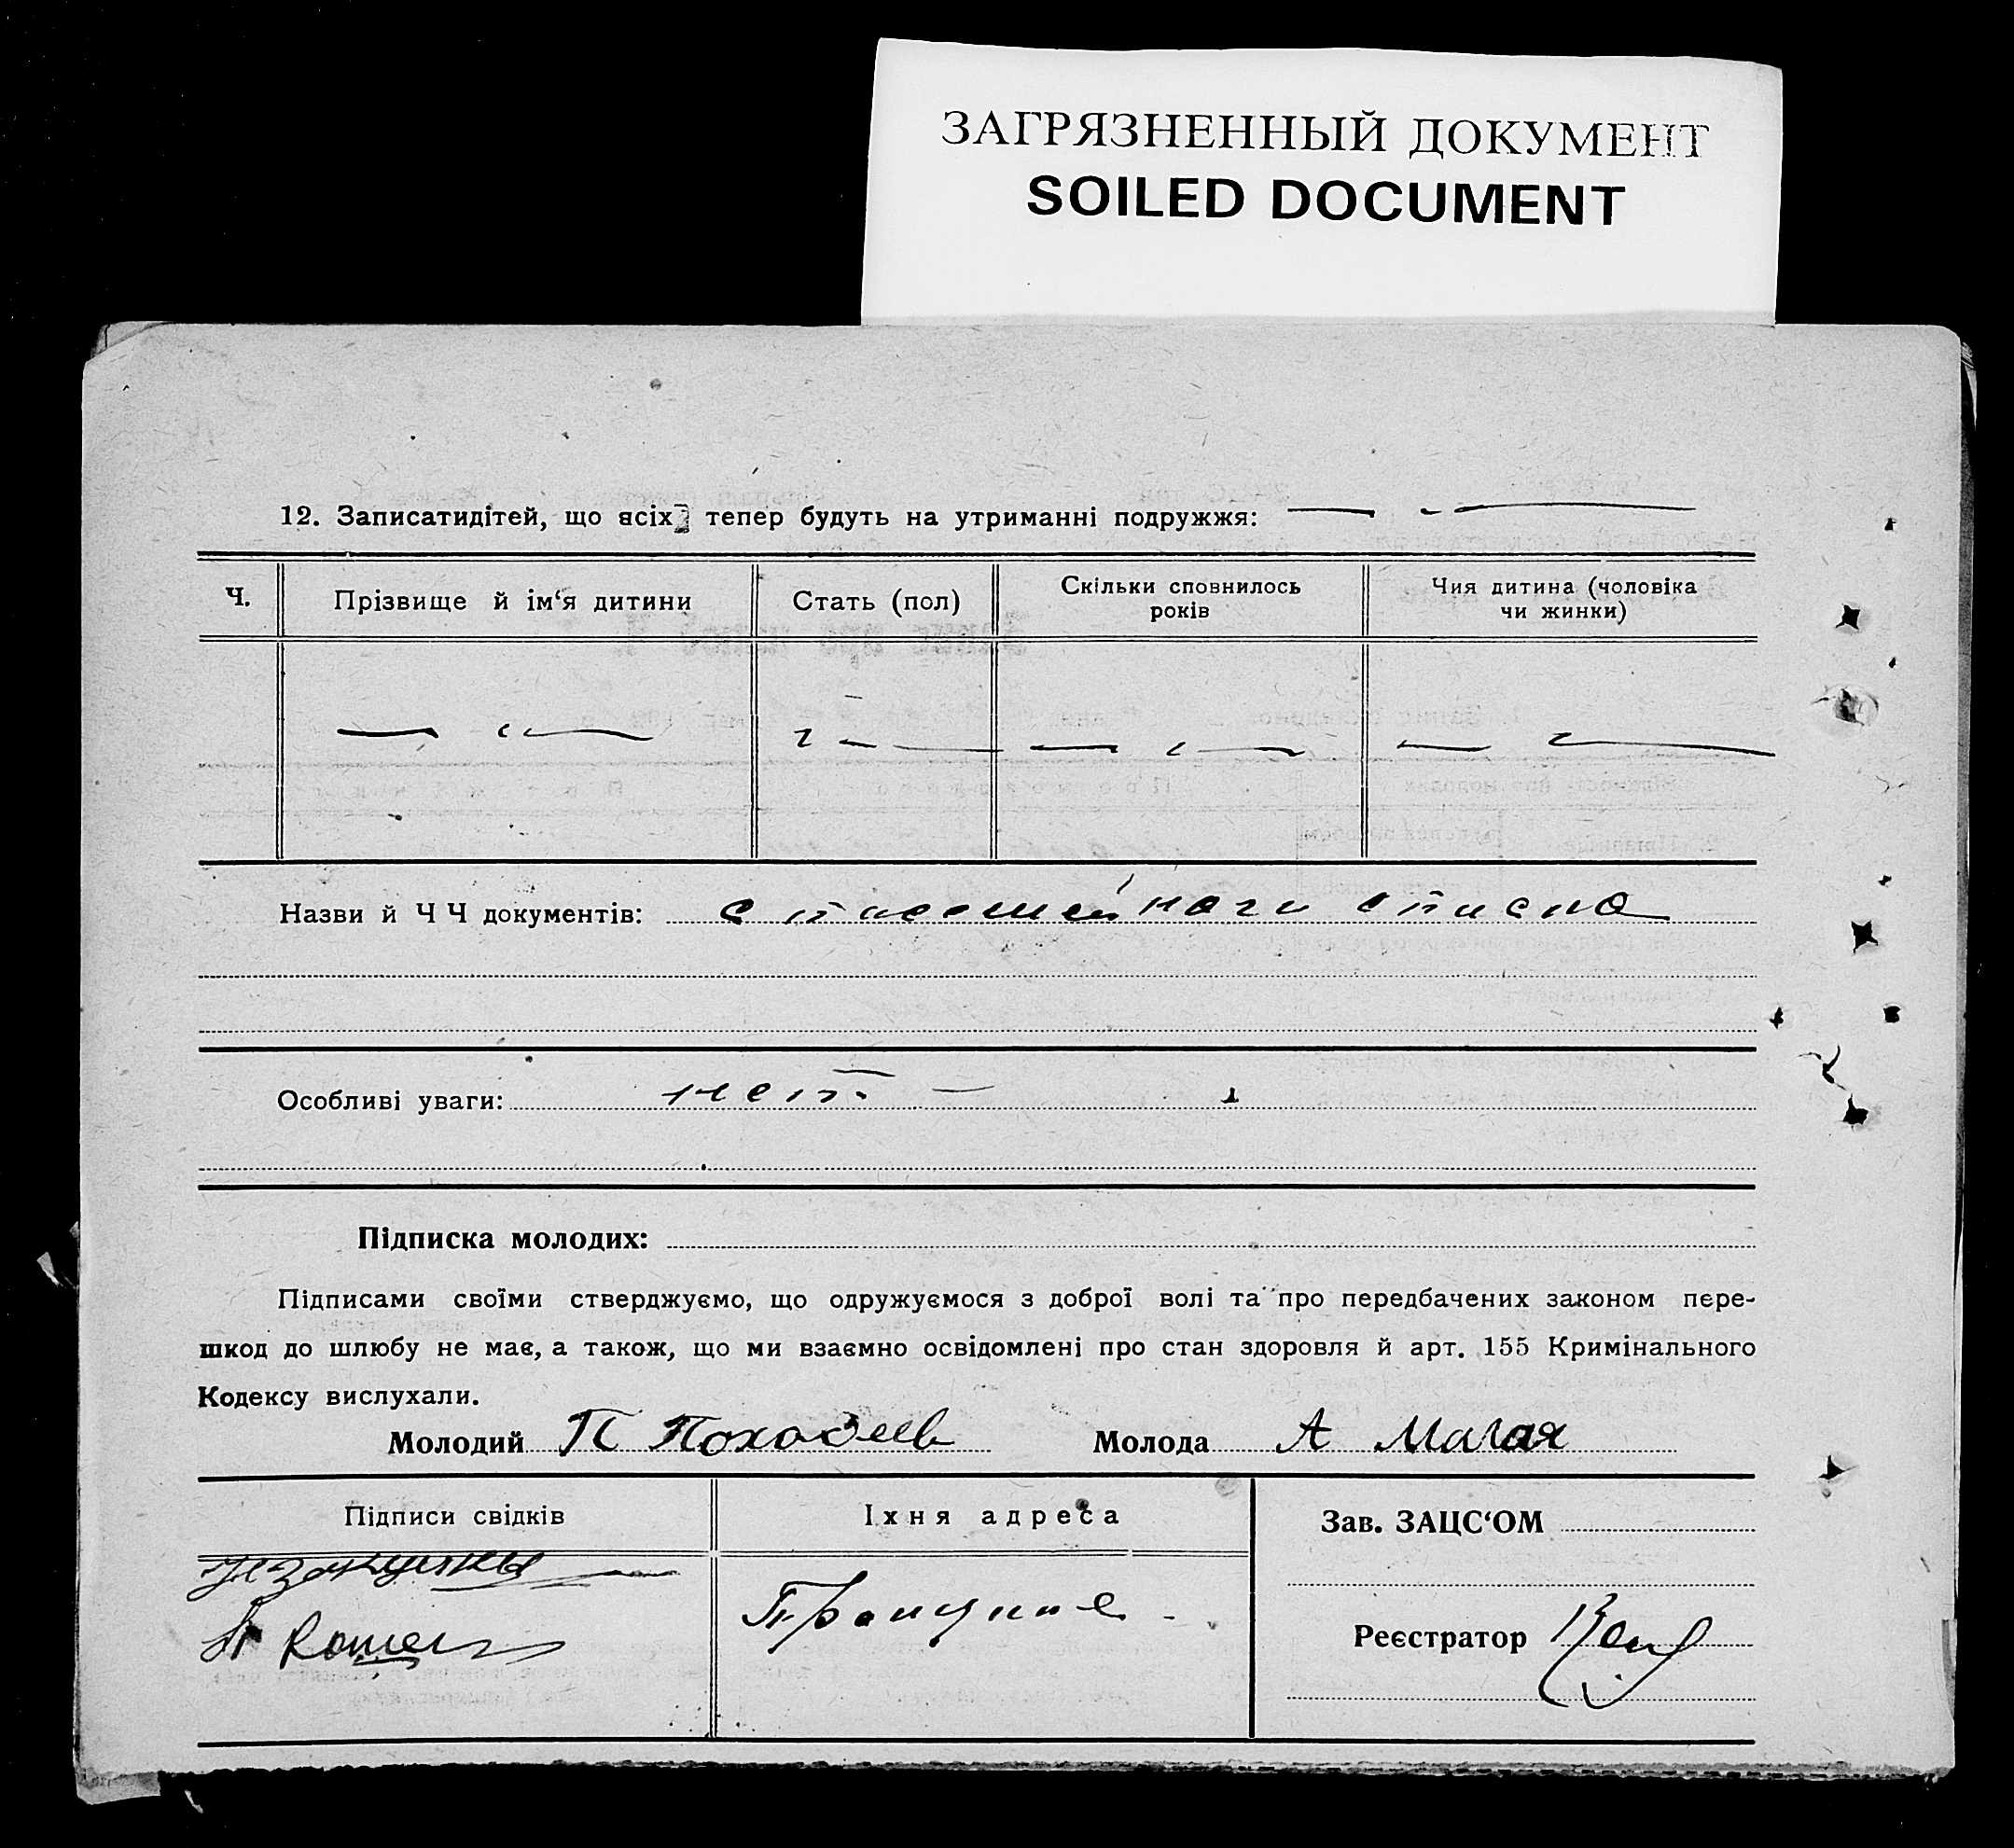 ЗАГРЯЗНЕННЫЙ ДОКУМЕНТ
SOILED DOCUMENT
12. Записатидітей, що всіх тепер будуть на утриманні подружжя:
Ч.
Прізвище й ім‘я дитини
Стать (пол)
Скільки сповнилось
років
Чия дитина (чоловіка
чи жинки)
Назви й Ч Ч документів: с списка
Особливі уваги: нет
Підписка молодих:
Підписами своїми стверджуємо, що одружуємося з доброї волі та про передбачених законом пере-
шкод до шлюбу не має, а також, що ми взаємно освідомлені про стан здоровля й арт. 155 Кримінального
Кодексу вислухали.
Молодий П Походеев Молода А Малая
Підписи свідків
Їхня адреса
Зав. ЗАЦС‘ОМ
Реєстратор